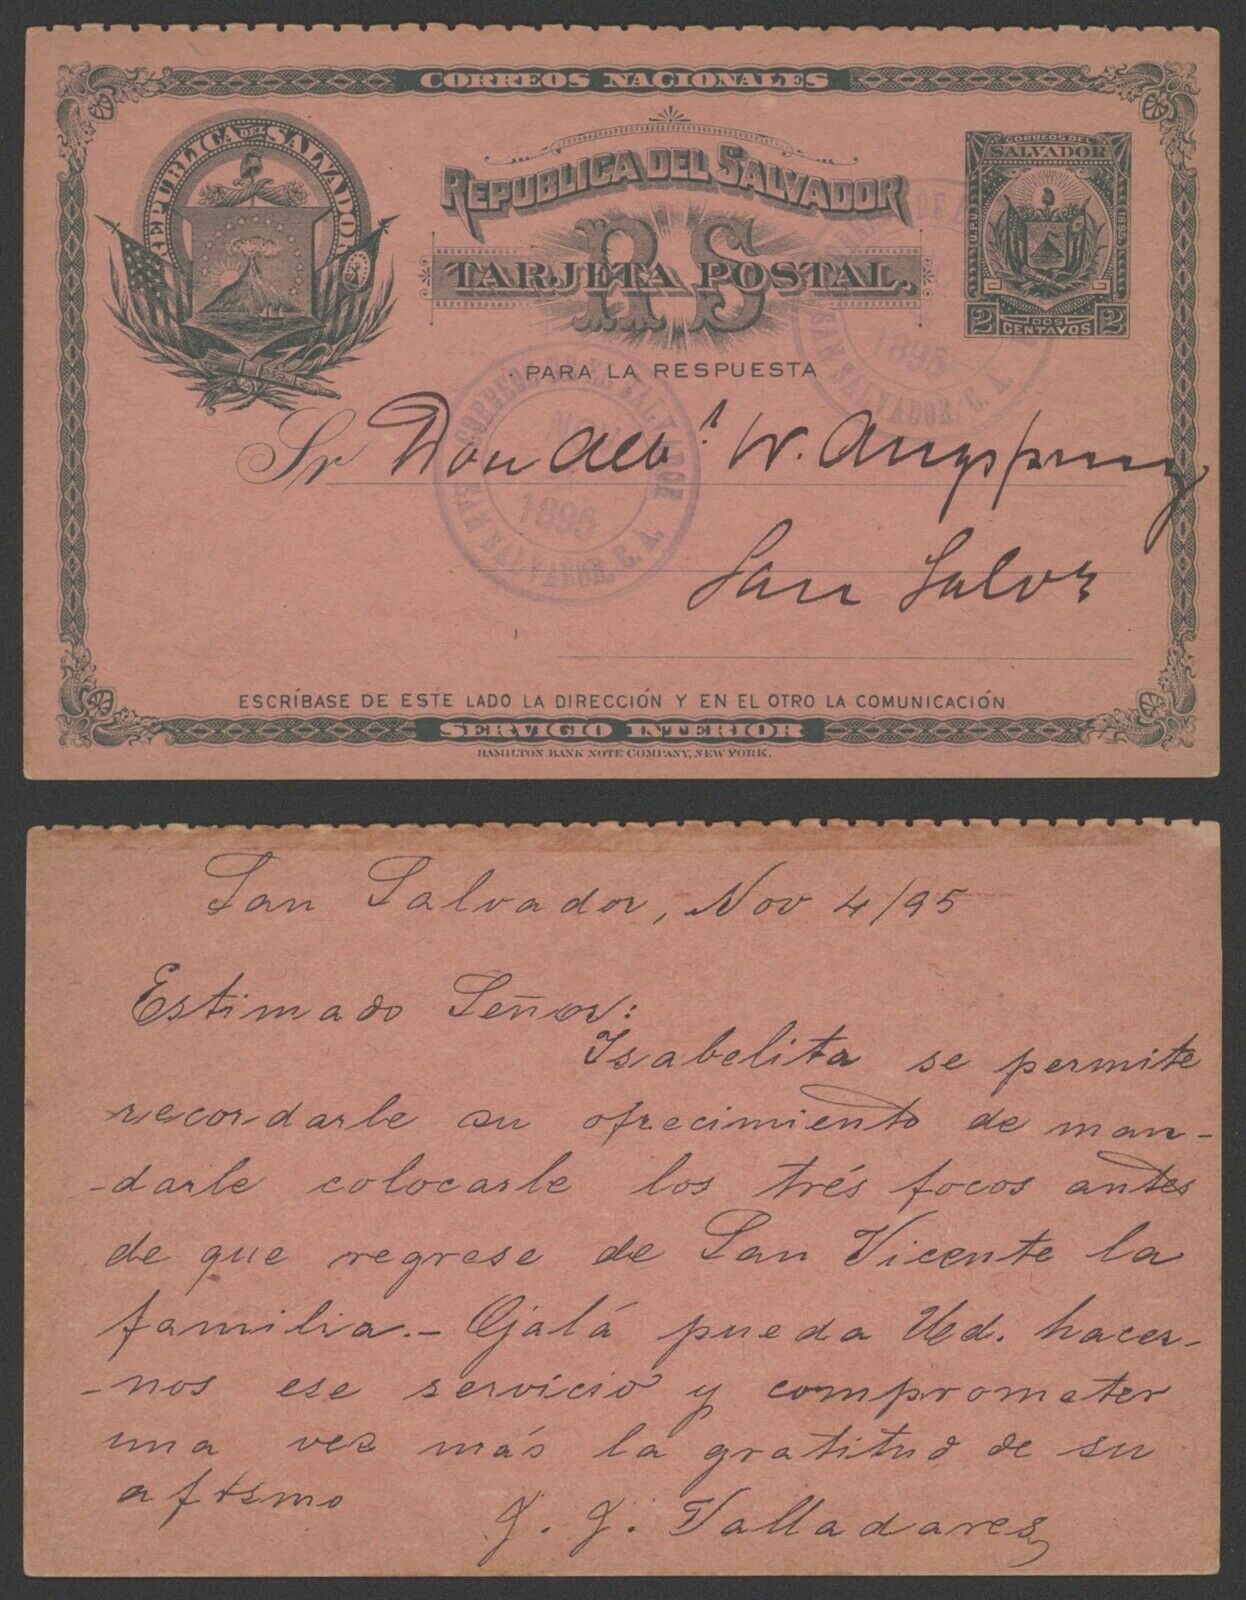 CORREOS NACIONALES
REPUBLICA DEL SALVADOR
REPUBLICA DEL SALVADOR
RS
TARJETA POSTAL.
CORREOS DEL
SALVADOR
U.P.U.
1895
2 DOS CENTAVOS 2
PARA LA RESPUESTA
CORREOS DE EL SALVADOR
NOV
1895
SAN SALVADOR, C. A.
DE
1895
SAN SALVADOR, C. A.
Sr Don W.
San Salvr
ESCRÍBASE DE ESTE LADO LA DIRECCIÓN Y EN EL OTRO LA COMUNICACIÓN
SERVICIO INTERIOR
HAMILTON BANK NOTE COMPANY, NEW YORK.
San Salvador, Nov 4/95
Estimado Señor:
Isabelita se permite
recordarle su ofrecimiento de man-
-darle colocarle los trés focos antes
de que regrese de San Vicente la
familia.- Ojalá pueda Ud. hacer-
-nos ese servicio y comprometer
una vez más la gratitud de su
aftsmo
J. J. Valladares